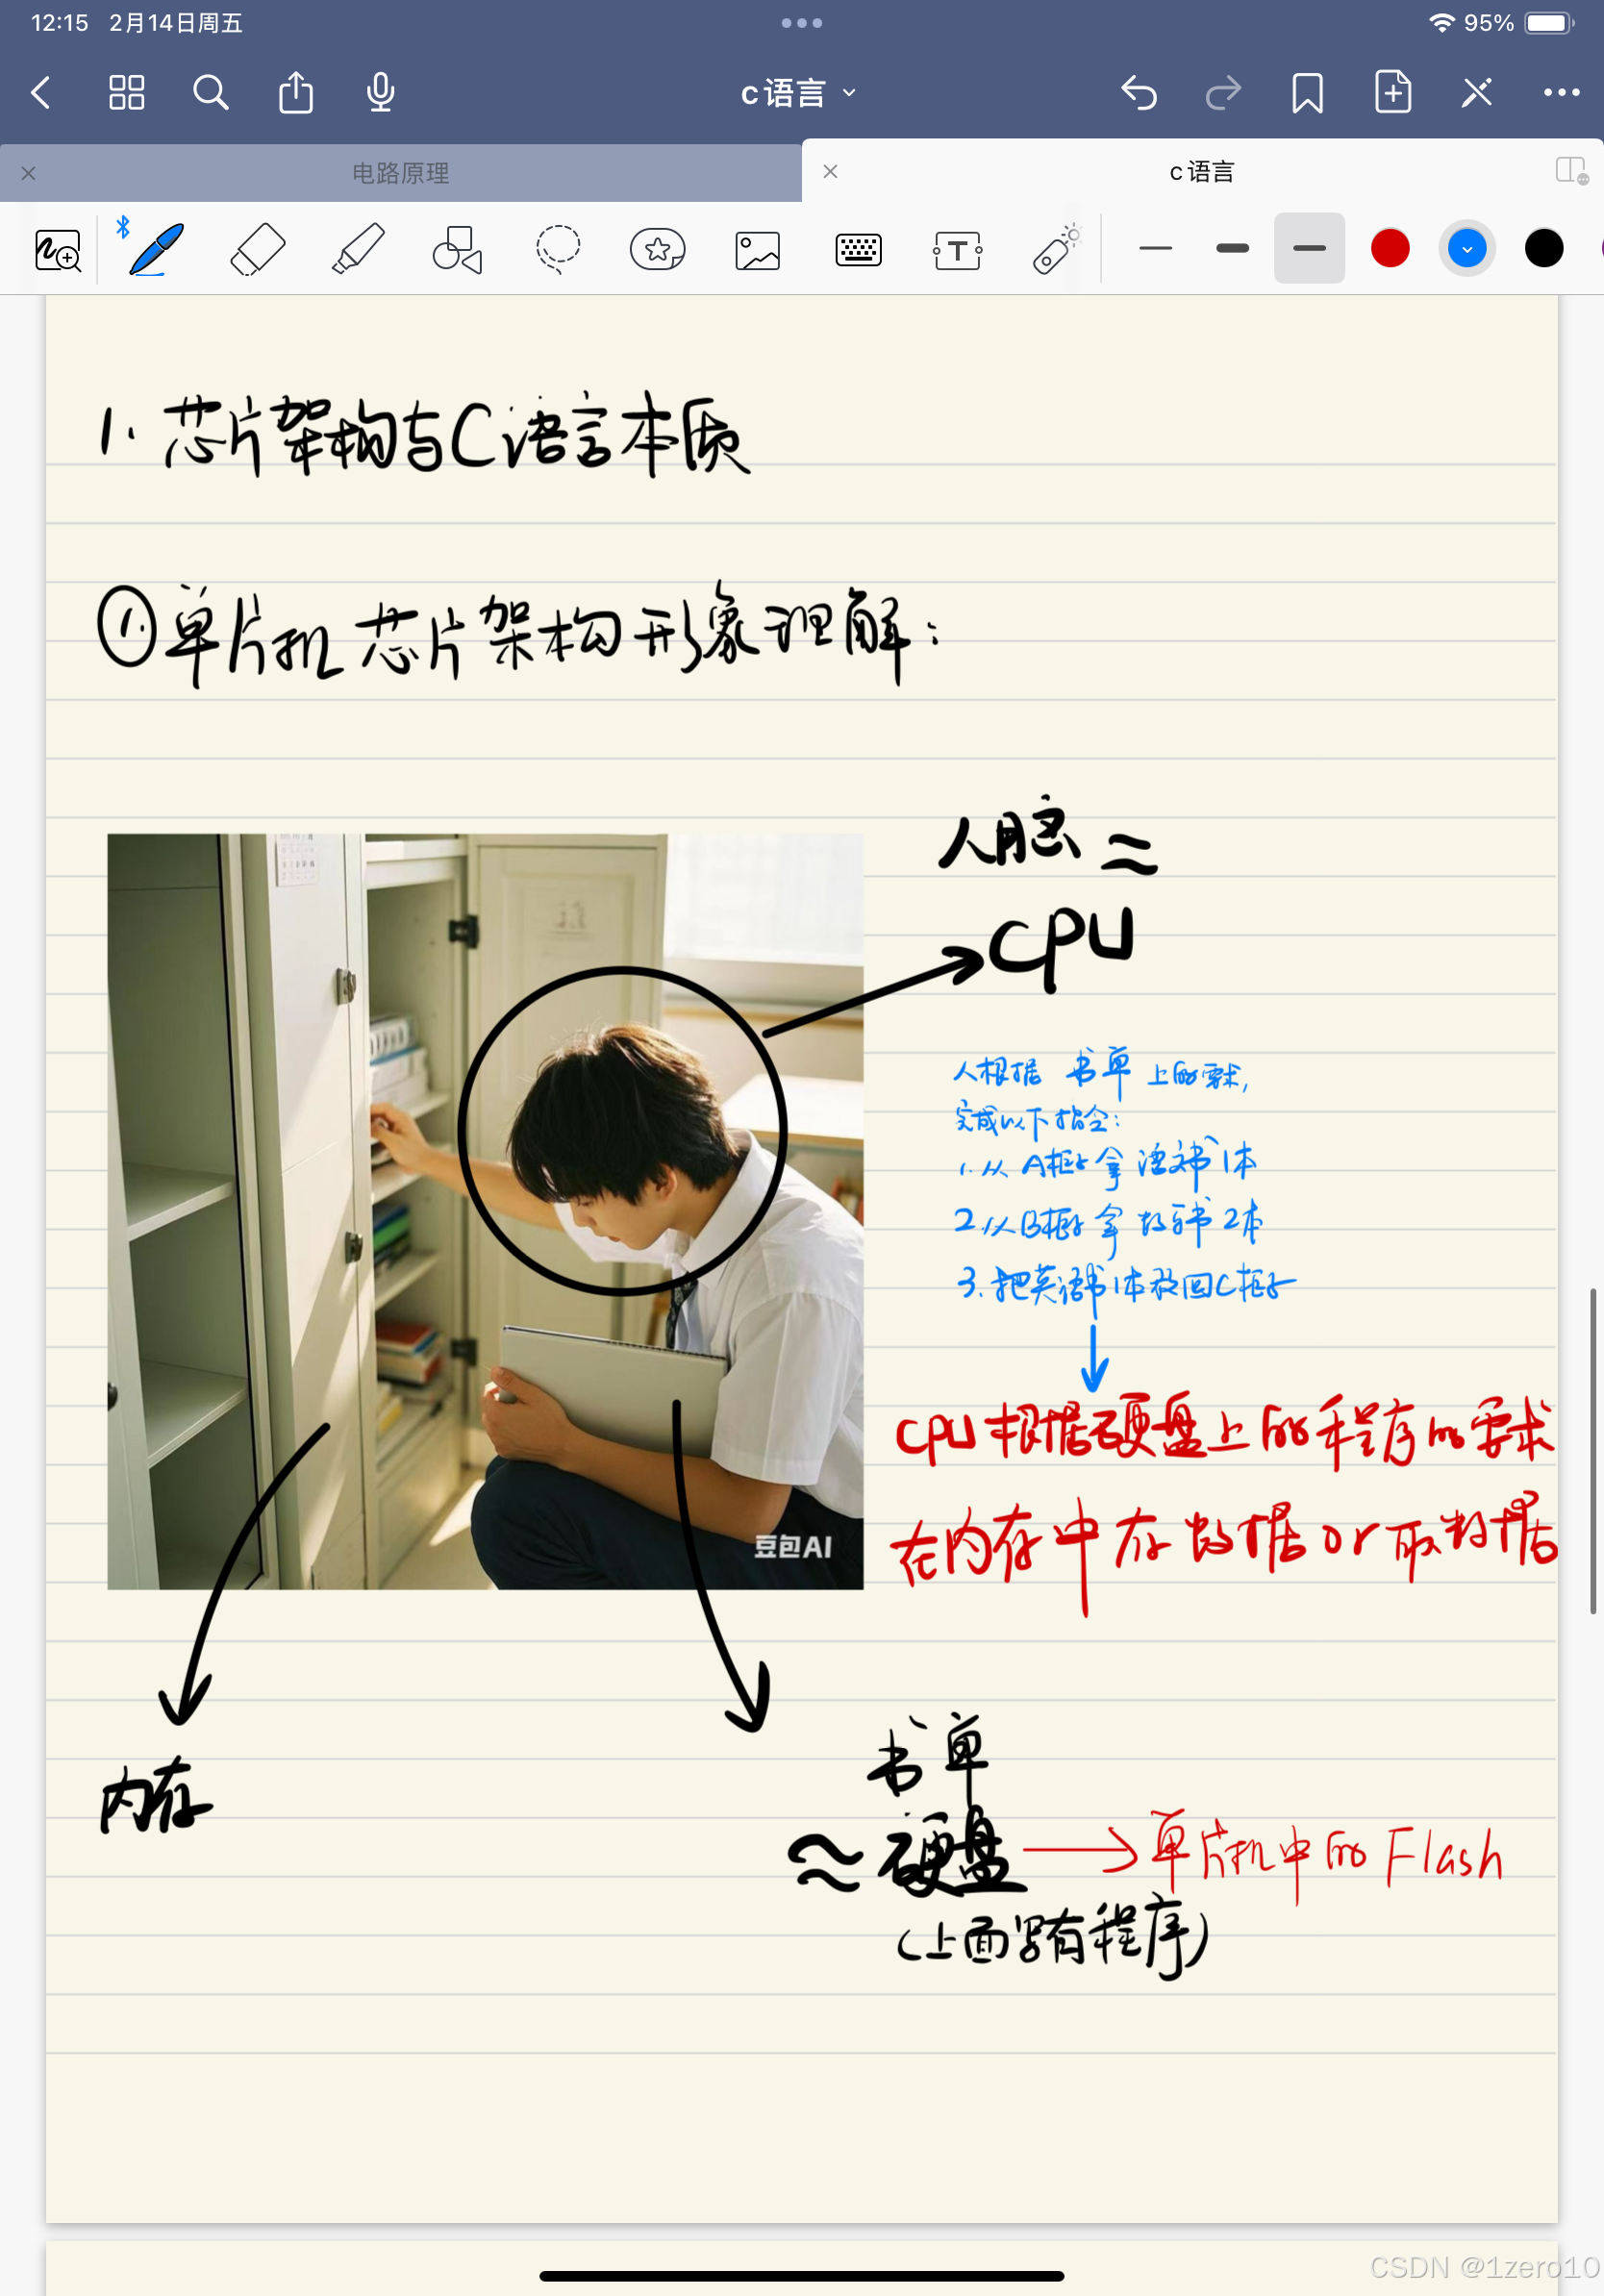 12:15 2月14日周五
95%
c语言
电路原理
c语言
T
1. 芯片架构与C语言本质
① 单片机芯片架构形象理解：
人脑 ≈
CPU
人根据 书单 上的要求,
完成以下指令：
1. 从A柜子拿语文书1本
2. 从B柜子拿数学书2本
3. 把英语书1本放回C柜子
CPU根据硬盘上的程序的要求
在内存中存数据or取数据
豆包AI
内存
书单
≈ 硬盘 → 单片机中的 Flash
(上面写有程序)
CSDN @1zero10